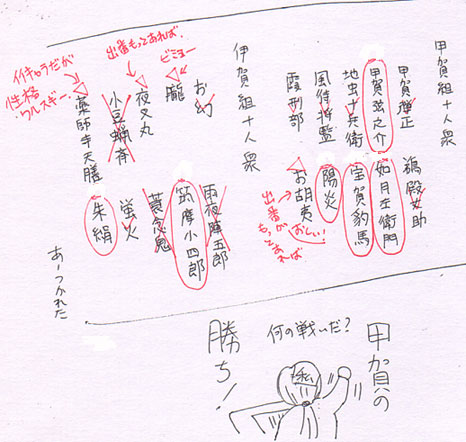 甲賀組十人衆
甲賀弾正
甲賀弦之介
地虫十兵衛
風待将監
霞刑部
鵜殿丈助
如月左衛門
室賀豹馬
陽炎
お胡夷
おしい!
出番が
もっとあれば
伊賀組十人衆
お幻
朧
ビミョー
夜叉丸
出番もっとあれば。
小豆蝋斎
薬師寺天膳
イイキャラだが
性格
ワルスギー。
雨夜陣五郎
筑摩小四郎
蓑念鬼
蛍火
朱絹
あーつかれた
甲賀の
勝ち!
何の戦いだ?
私